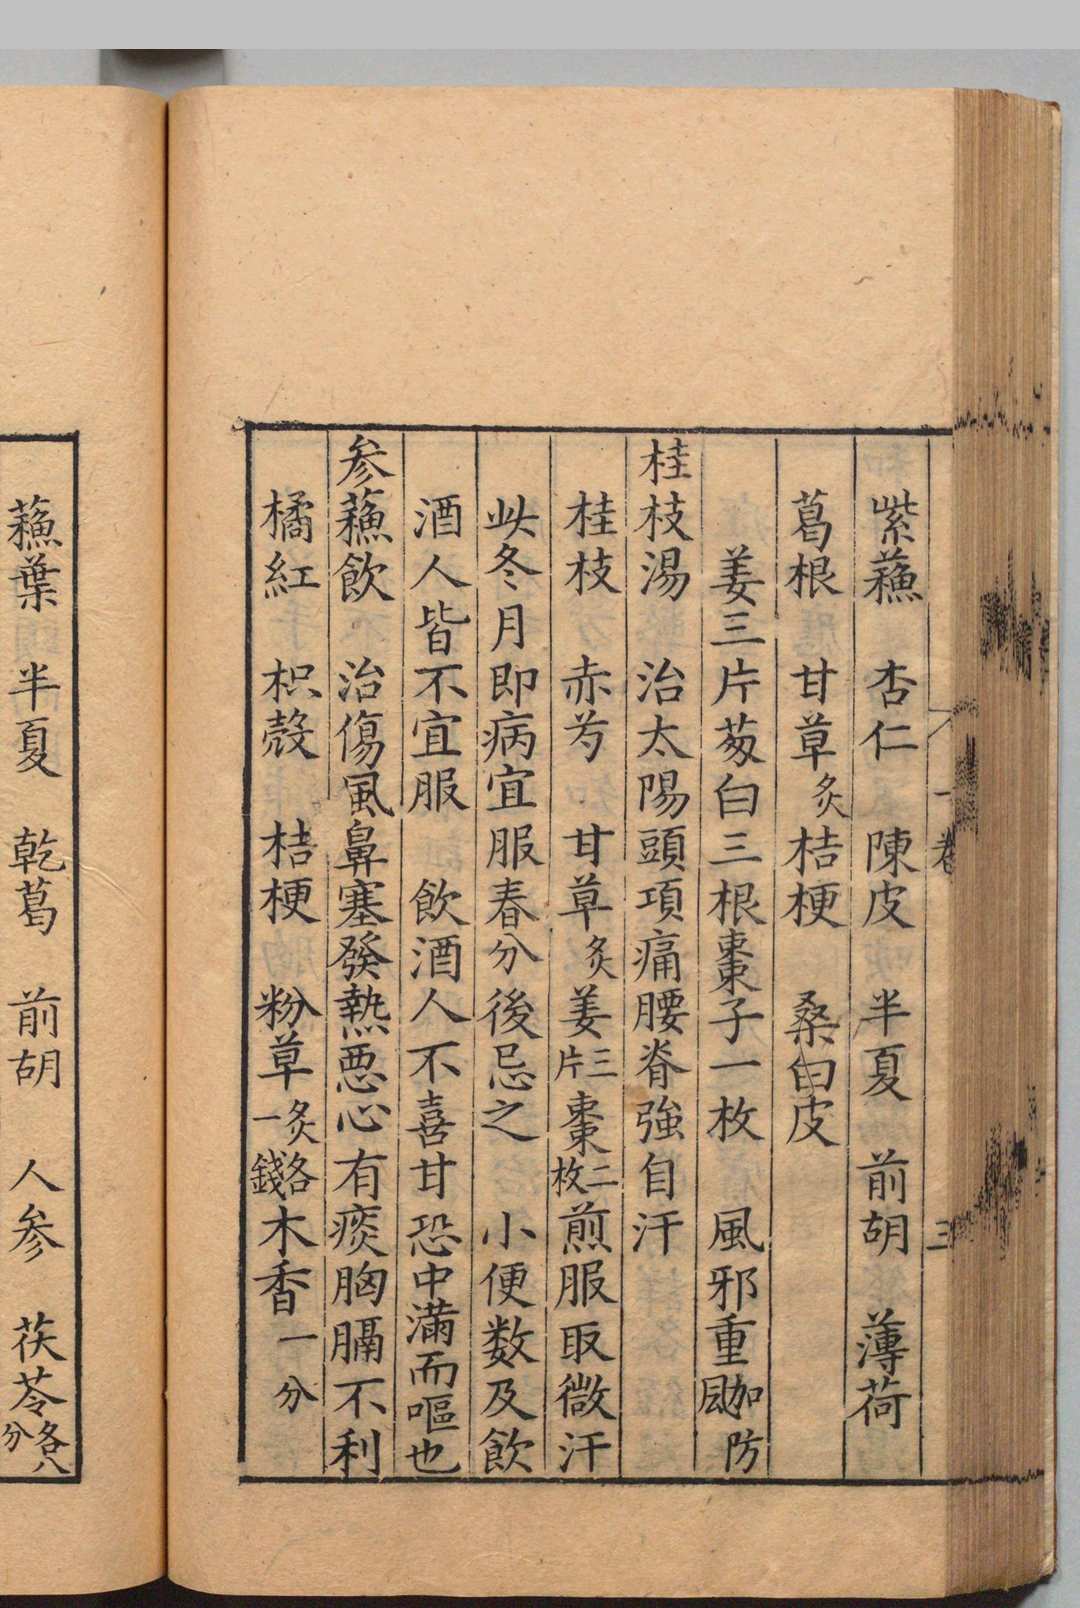 紫蘓　杏仁　陳皮　半夏　前胡　薄荷
葛根　甘草炙　桔梗　桑白皮
姜三片葱白三根棗子一枚　風邪重加防風
桂枝湯　治太陽頭項痛腰脊強自汗
桂枝　赤芍　甘草炙　姜三片　棗二枚　煎服取微汗
此冬月即病宜服春分後忌之　小便数及飲
酒人皆不宜服　飲酒人不喜甘恐中滿而嘔也
参蘓飲　治傷風鼻塞發熱惡心有痰胸膈不利
橘紅　枳殼　桔梗　粉草炙各一錢　木香一分
蘓葉　半夏　乾葛　前胡　人参　茯苓各八分
一卷
三